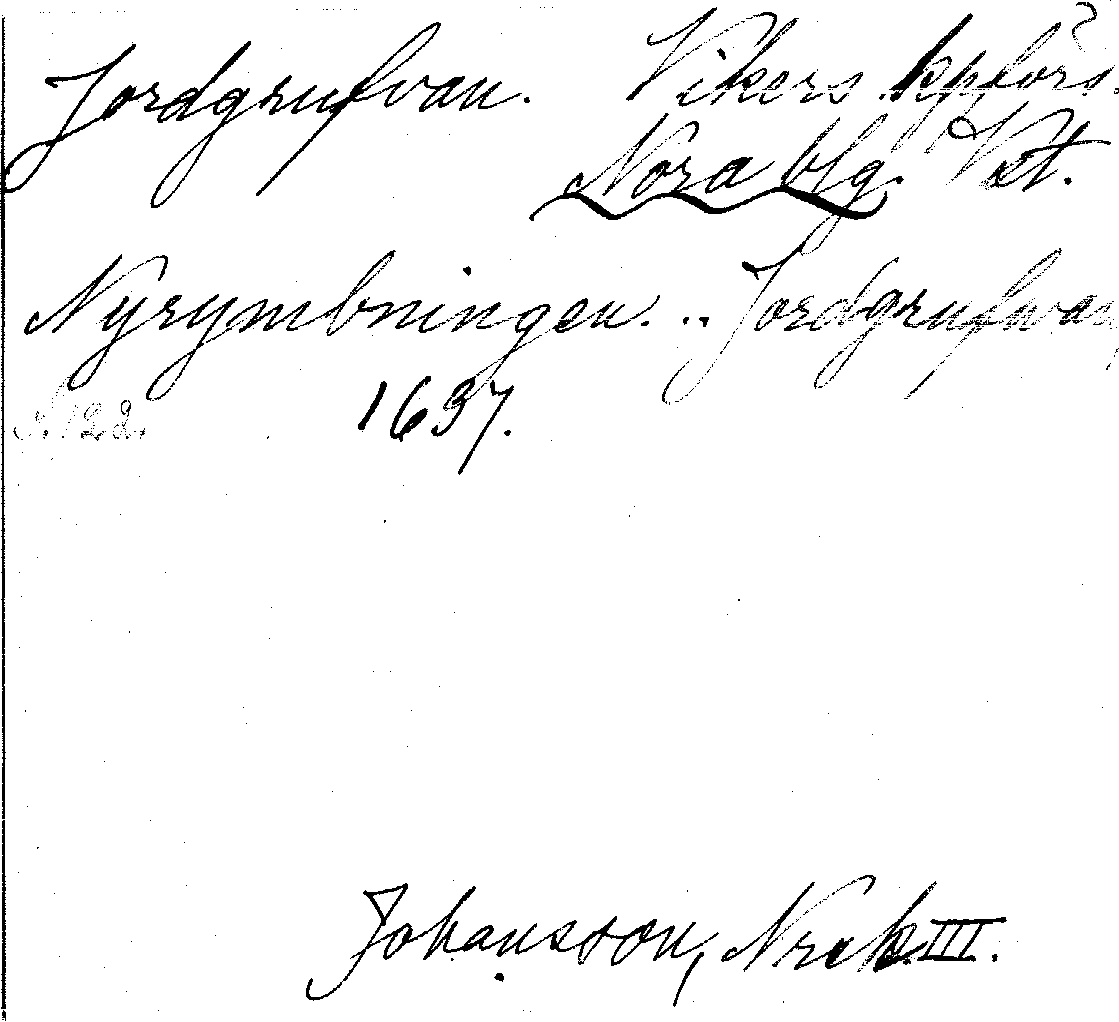 Jordgrufvan. Vikers kpförs. ?
Nora blg. Vst.
Nyrymbningen. .. Jordgrufvan,
s. 122. 1637.
Johansson, Nrck III.